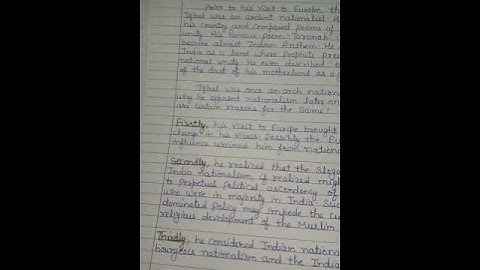 Prior to his visit to Europe, the
Iqbal was an ardent nationalist. H
his country and composed poems of
unity. His famous poem 'Taranah i
became almost Indian Anthem. He
India as a land where Prophets pre
national unity. He even described e
of the dust of his motherland as a
Iqbal was once an arch nation
why he opposed nationalism later on
are certain reasons for the same!
Firstly, his visit to Europe brought
change in his views. Possibly the Eu
influence weaned him from nationa
Secondly, he realized that the Sloga
India nationalism, if realized migh
to perpetual political ascendency of
who were in majority in India. Suc
dominated Policy may impede the cu
religious development of the Muslim
Thirdly, he considered Indian nationa
bourgeois nationalism and the India